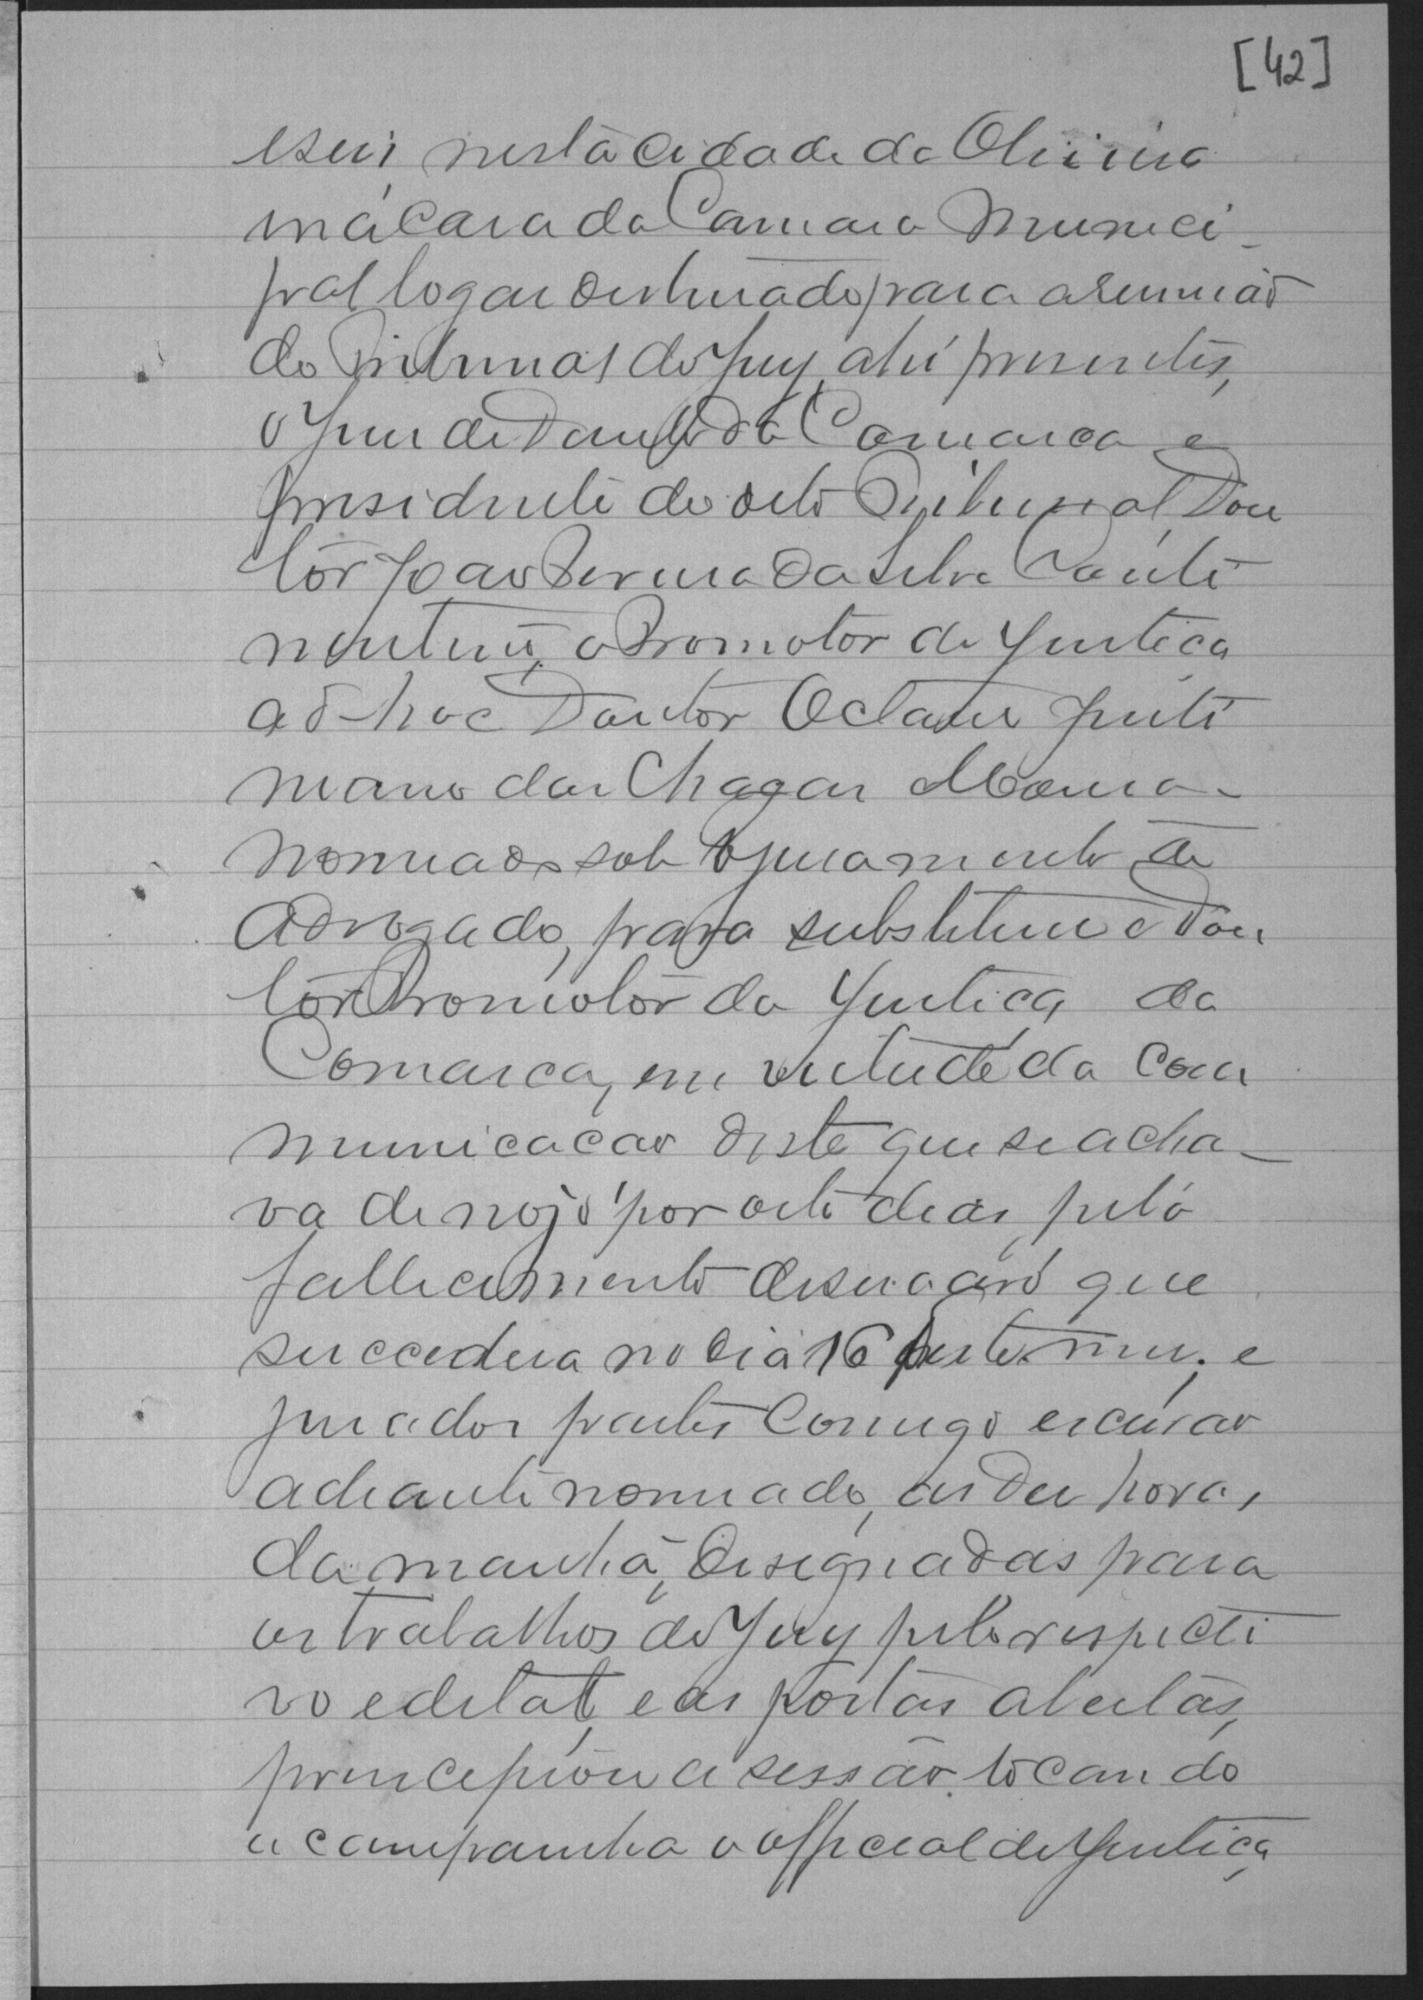 [42]
e seis nesta cidade de Oliveira
na casa da Camara Munici-
pal logar destinado para a reunião
do Tribunal do Jury, ahi presentes,
o Juiz de Direito da Comarca e
presidente do dito Tribunal, Dou
tor João da Silva
o Promotor de Justiça
ad-hoc Doutor Octavio Justi
niano das Chagas
nomeado sob o juramento de
advogado, para substituir o Dou
tor Promotor da Justiça da
Comarca, em virtude da com
municação deste que se acha-
va de nojo por oito dias, pelo
fallecimento de sua avó que
succedera no dia 16 deste mez; e
jurados partes comigo escrivão
adiante nomeado, as dez horas,
da manhã, designadas para
os trabalhos do Jury pelo respecti
vo edital, e as portas abertas,
principiou a sessão tocando
a campanha o official de Justiça